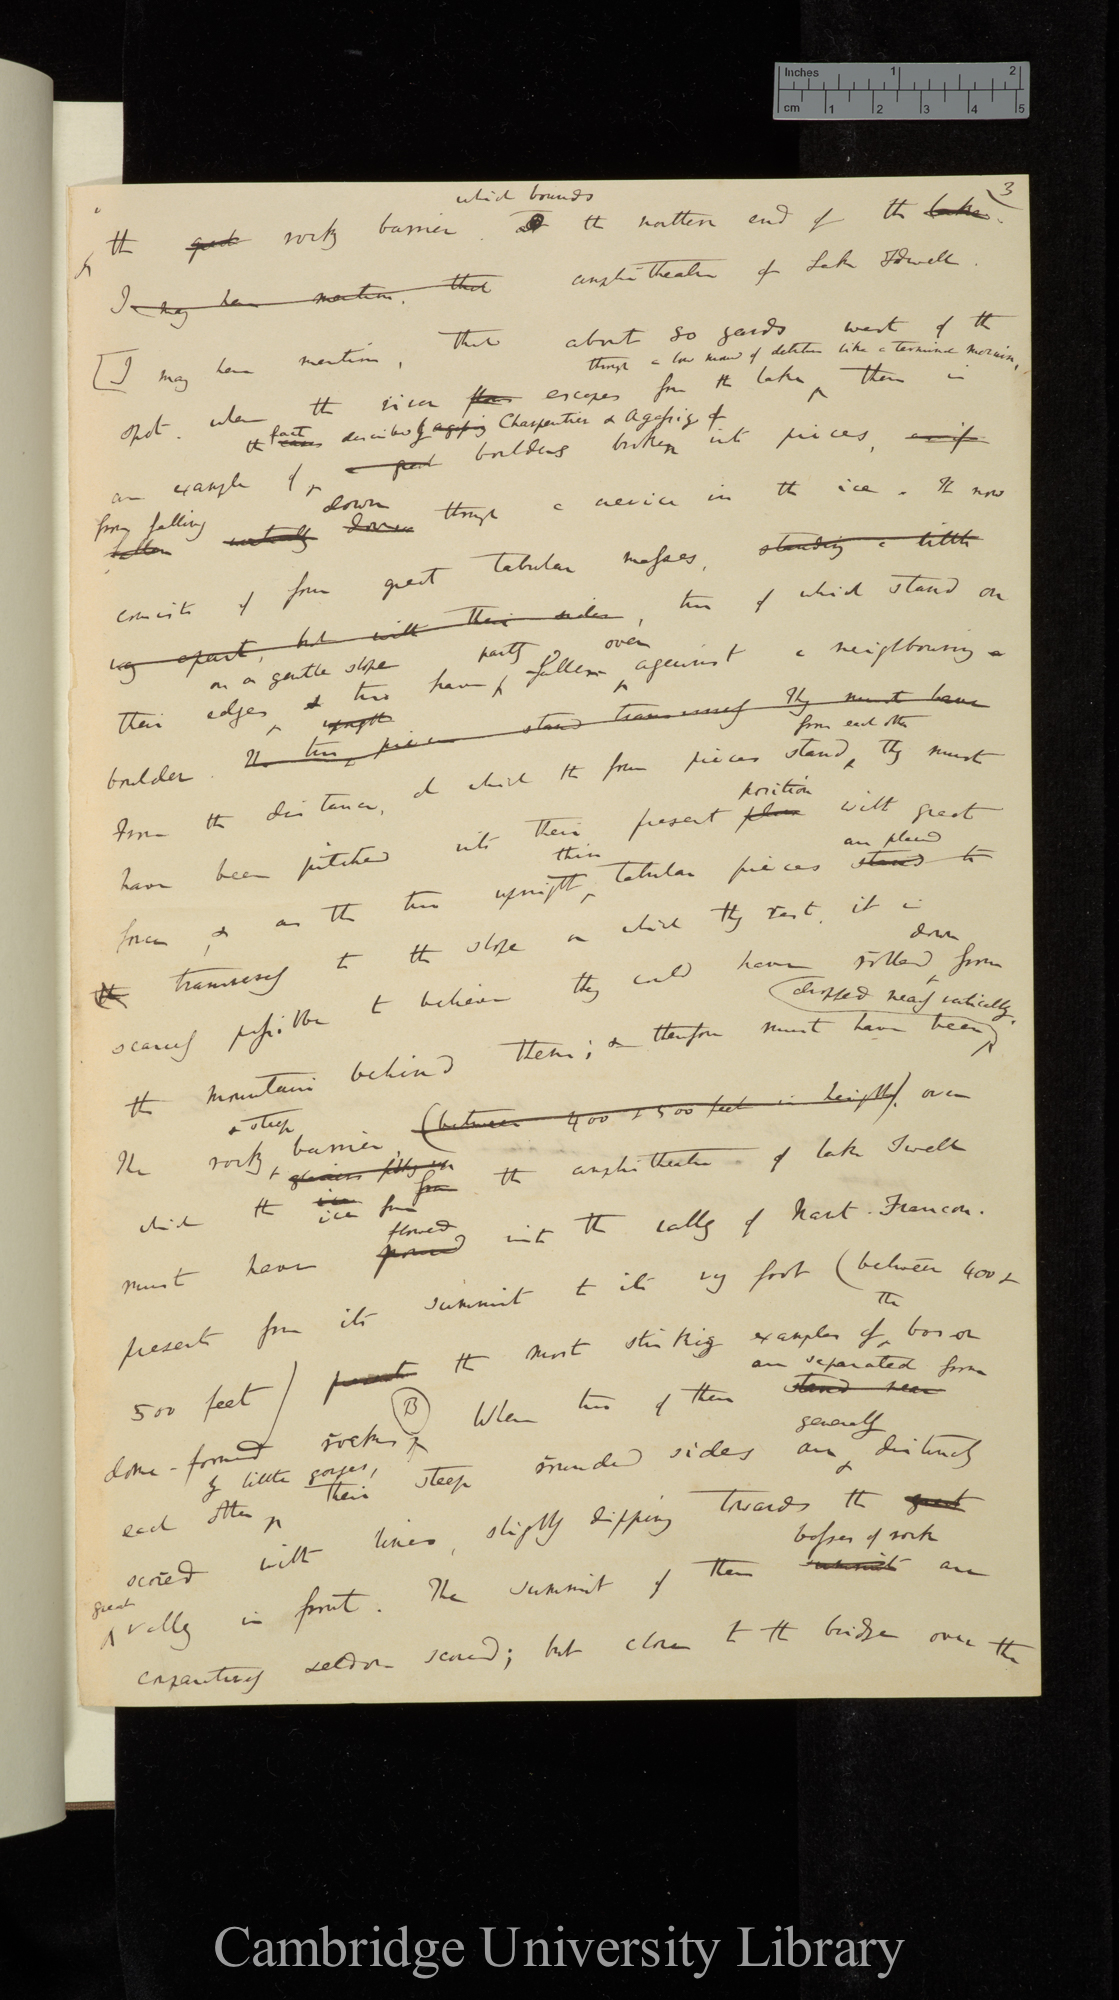 Inches 1 2
cm 1 2 3 4 5
3
which bounds
the great rocky barrier . the northern end of the lake.
I may here mention, that amphitheatre of Lake Idwell.
[I may here mention, that about 80 yards west of the
through a low mound of detritus like a terminal moraine,
spot. where the river flows escapes from the lake, there is
the fact cases described by Charpentier & Agassiz of
an example of a great boulders broken into pieces, as if
from falling down
fallen vertically down through a crevice in the ice. It now
consists of four great tabular masses, standing a little
way apart, but with their sides, two of which stand on
on a gentle slope partly over
their edges & two have fallen against a neighbouring
upright
boulder. The two pieces stand transversely They must have
from each other
From the distance, at which the four pieces stand, they must
position
have been pitched into their present place with great
thin are placed
force, & as the two upright, tabular pieces stand to
the transversely to the slope on which they rest, it is
down
scarcely possible to believe they could have rolled from
(dropped nearly vertically.
the mountain behind them; & therefore must have been)
& steep
The rocky barrier, (between 400 & 500 feet in height), over
which the ice from the amphitheatre of lake Idwell
ice from
flowed
must have poured into the valley of Nant-Francon.
presents from its summit to its very foot (between 400 &
the
500 feet) presents the most striking examples of boss or
are separated from
dome-formed rocks. (B) When two of them stand near
by little gorges, generally
each other their steep rounded sides are distinctly
scored with lines, slightly dipping towards the great
bosses of rock
great
valley in front. The summit of them summits are
comparatively seldom scored; but close to the bridge over the
Cambridge University Library